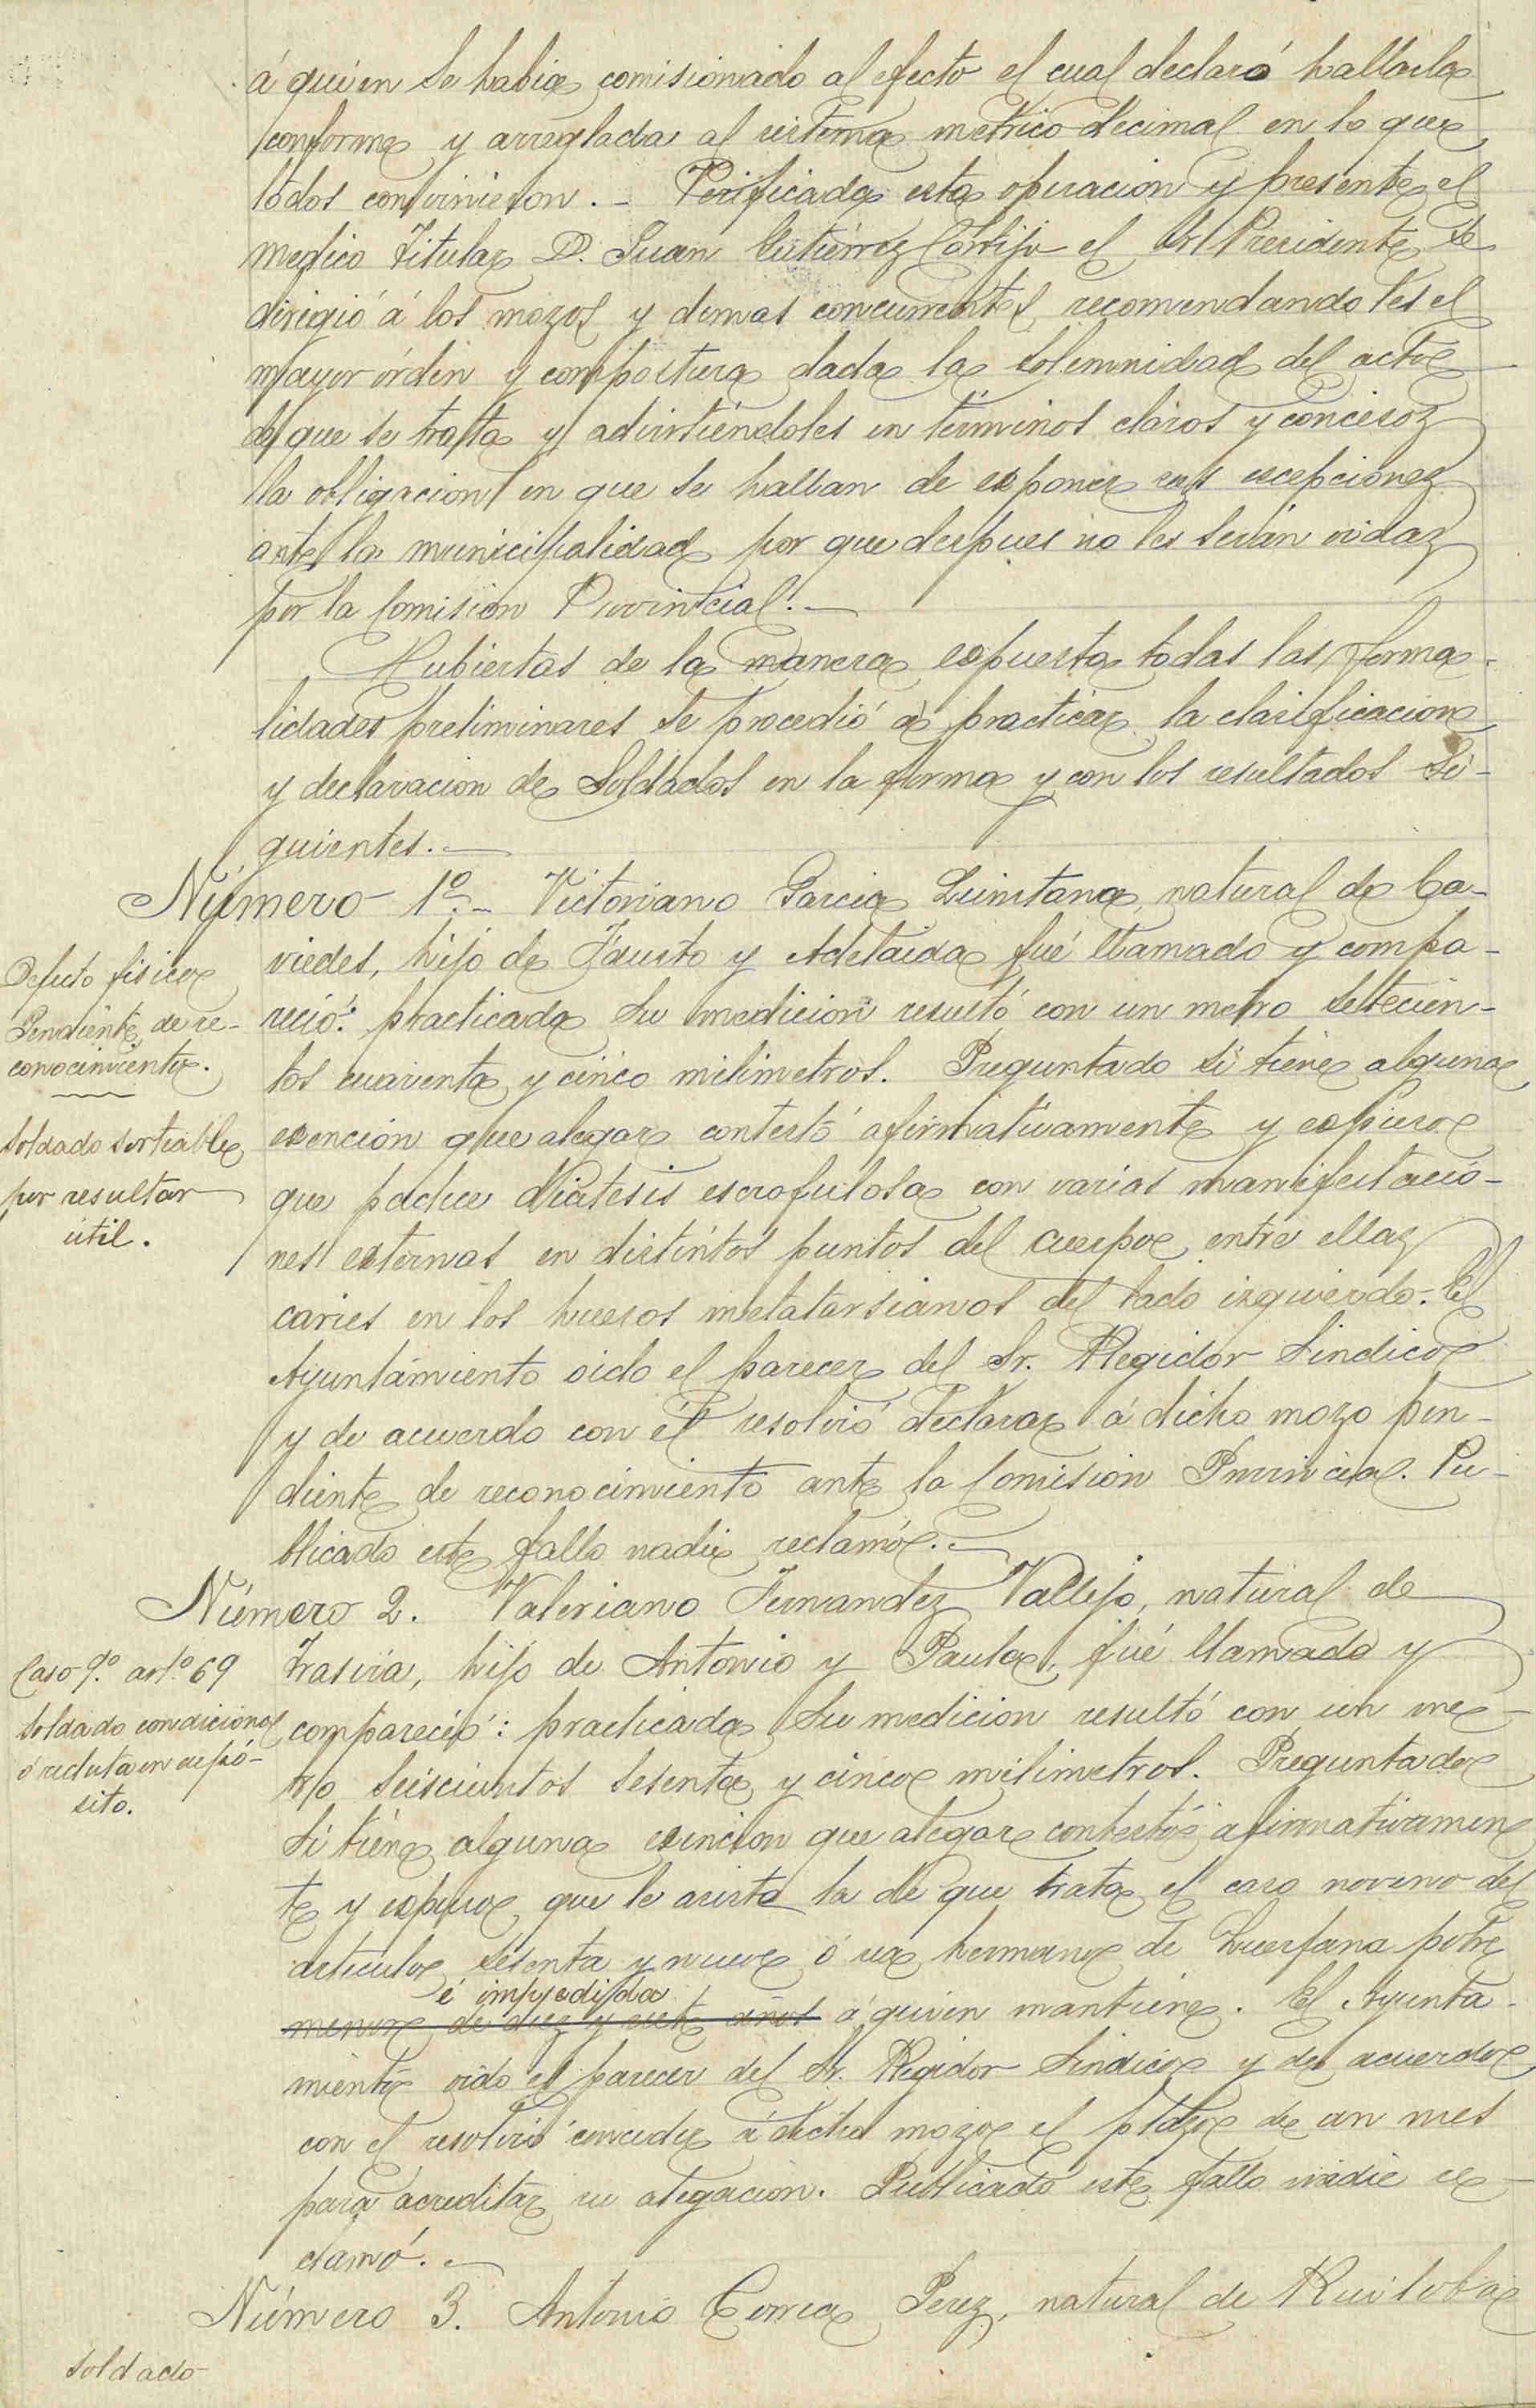 á quien se habia comisionado al efecto el cual declaró hallarla
conforme y arreglada al sistema metrico-decimal en lo que
todos convinieron. - Verificada esta operacion y presente el
medico Titular D. Juan Gutierrez Cortijo el Sr. Presidente se
dirigió á los mozos y demas concurrentes recomendandoles el
mayor órden y compostura dada la solemnidad del acto
de que se trata y advirtiéndoles en términos claros y concisos
la obligacion en que se hallan de exponer sus escepciones
ante la municipalidad por que despues no les serán oidas
por la Comision Provincial. -
Cubiertas de la manera expuesta todas las forma-
lidades preliminares se procedió á practicar la clasificacion
y declaracion de Soldados en la forma y con los resultados si-
guientes. -
Número 1º. - Victoriano Garcia Quintana, natural de Ca-
viedes, hijo de Fausto y Adelaida fué llamado y compa-
reció: practicada su medicion resultó con un metro setecien-
tos cuarenta y cinco milimetros. Preguntado si tiene alguna
exención que alegar contestó afirmativamente y expuso
que padece diatesis escrofulosa con varias manifestacio-
nes externas en distintos puntos del cuerpo, entre ellas
caries en los huesos metatarsianos del lado izquierdo. El
Ayuntamiento oido el parecer del Sr. Regidor Sindico
y de acuerdo con él resolvió declarar á dicho mozo pen-
diente de reconocimiento ante la Comision Provincial. Pu-
blicado este fallo nadie reclamó. -
Defecto fisico
Pendiente de re-
conocimiento.
Soldado sorteable
por resultar
útil.
Número 2. Valeriano Fernandez Vallejo, natural de
Trasvia, hijo de Antonio y Paula, fué llamado y
compareció: practicada su medicion resultó con un me-
tro seiscientos sesenta y cinco milimetros. Preguntado
si tiene alguna exencion que alegar contestó afirmativamen
te y expuso que le asiste la de que trata el caso noveno del
articulo sesenta y nueve ó sea hermano de huerfana pobre
é impedida
menor de diez y siete años á quien mantiene. El Ayunta-
miento oido el parecer del Sr. Regidor Sindico y de acuerdo
con el resolvió conceder á dicho mozo el plazo de un mes
para acreditar su alegacion. Publicado este fallo nadie re-
clamó. -
Caso 9.º art.º 69
Soldado condicional
ó recluta en depó-
sito.
Número 3. Antonio Correa Perez, natural de Ruiloba
Soldado